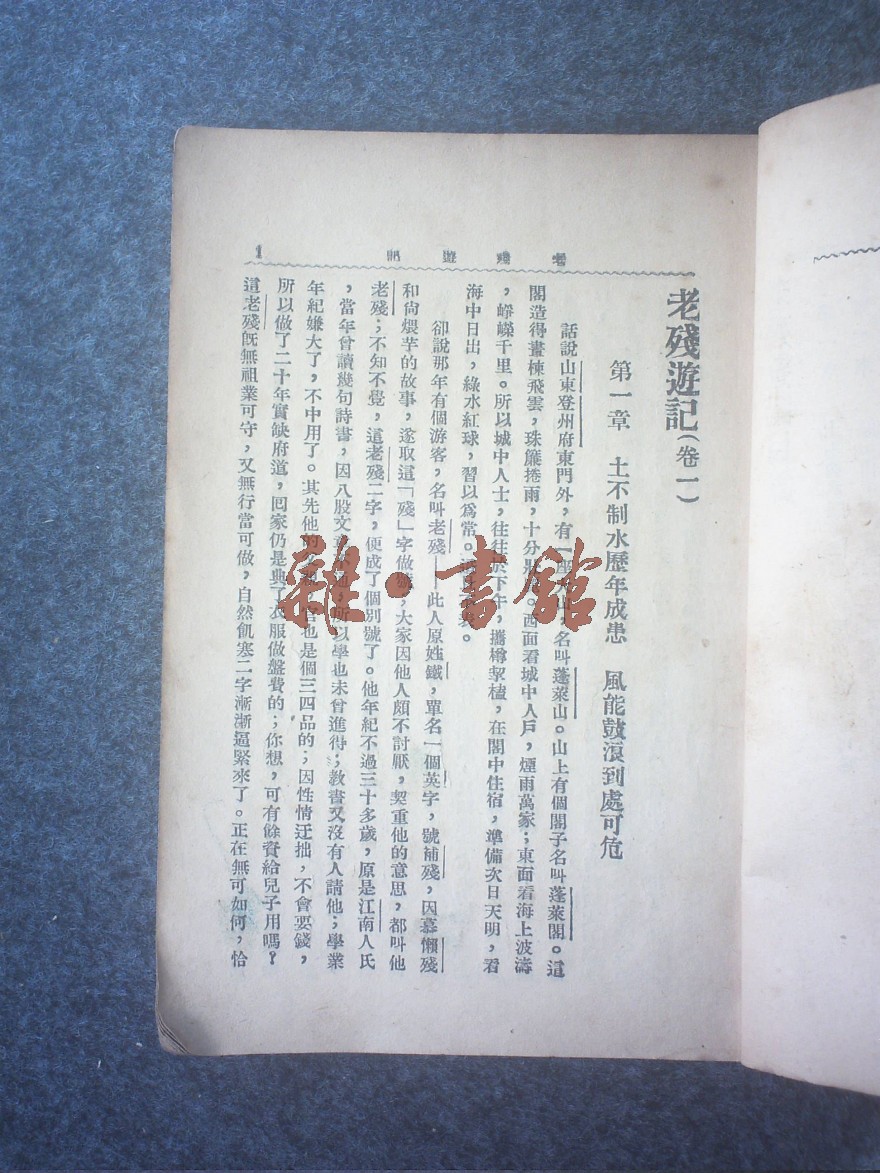 老殘遊記
1
老殘遊記(卷一)
第一章　土不制水歷年成患　風能鼓浪到處可危
話說山東登州府東門外，有一山，名叫蓬萊山。山上有個閣子名叫蓬萊閣。這
閣造得畫棟飛雲，珠簾捲雨，十分。西面看城中人戶，煙雨萬家；東面看海上波濤
，崢嶸千里。所以城中人士，往往於下午，攜樽挈榼，在閣中住宿，準備次日天明，看
海中日出，綠水紅球，習以爲常。
卻說那年有個游客，名叫老殘——此人原姓鐵，單名一個英字，號補殘，因慕懶殘
和尙煨芋的故事，遂取這「殘」字做號，大家因他人頗不討厭，契重他的意思，都叫他
老殘；不知不覺，這老殘二字，便成了個別號了。他年紀不過三十多歲，原是江南人氏
，當年曾讀幾句詩書，因八股文章不通，所以學也未曾進得；教書又沒有人請他；學業
年紀嫌大了，不中用了。其先他的官也是個三四品的；因性情迂拙，不會要錢，
所以做了二十年實缺府道，回家仍是典了衣服做盤費的；你想，可有餘資給兒子用嗎？
這老殘旣無祖業可守，又無行當可做，自然飢寒二字漸漸逼緊來了。正在無可如何，恰
雜·書館